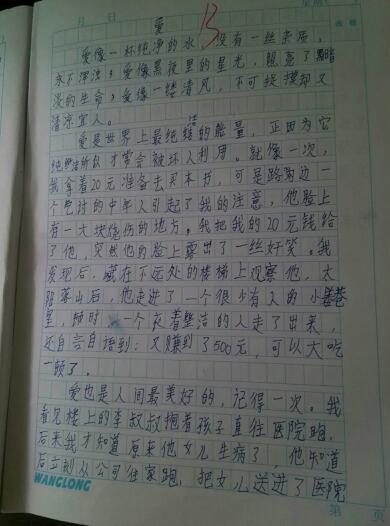 月 日 星期
爱 13
爱像一杯纯净的水,没有一丝杂质,
永不浑浊;爱像黑夜里的星光,照亮了黯
淡的生命;爱像一缕清风,不可捉摸却又
清凉宜人。
爱是世界上最纯洁的能量,正因为它
纯洁所以才常会被坏人利用。就像一次,
我拿着20元准备去买本书,可是路边一
个乞讨的中年人引起了我的注意,他脸上
有一大块烧伤的地方。我把我的20元钱给
了他,突然他的脸上露出了一丝奸笑。我
发现后,藏在不远处的楼梯上观察他,太
阳落山后,他走进了一个很少有人的小巷
里,顿时,一个衣着整洁的人走了出来,
还自言自语到:又赚到了500元,可以大吃
一顿了。
爱也是人间最美好的,记得一次。我
看见楼上的李叔叔抱着孩子直往医院跑,
后来我才知道原来他女儿生病了,他知道
后立刻从公司往家跑,把女儿送进了医院
WANGLONG
第 页